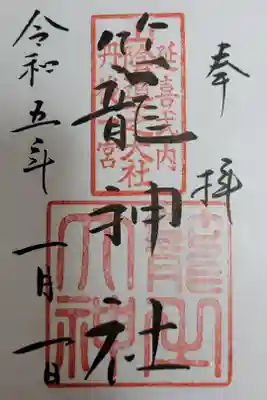 奉拝
延喜式内
山陰道 大社
丹後一宮
籠神社
籠之
大神
令和五年一月一日